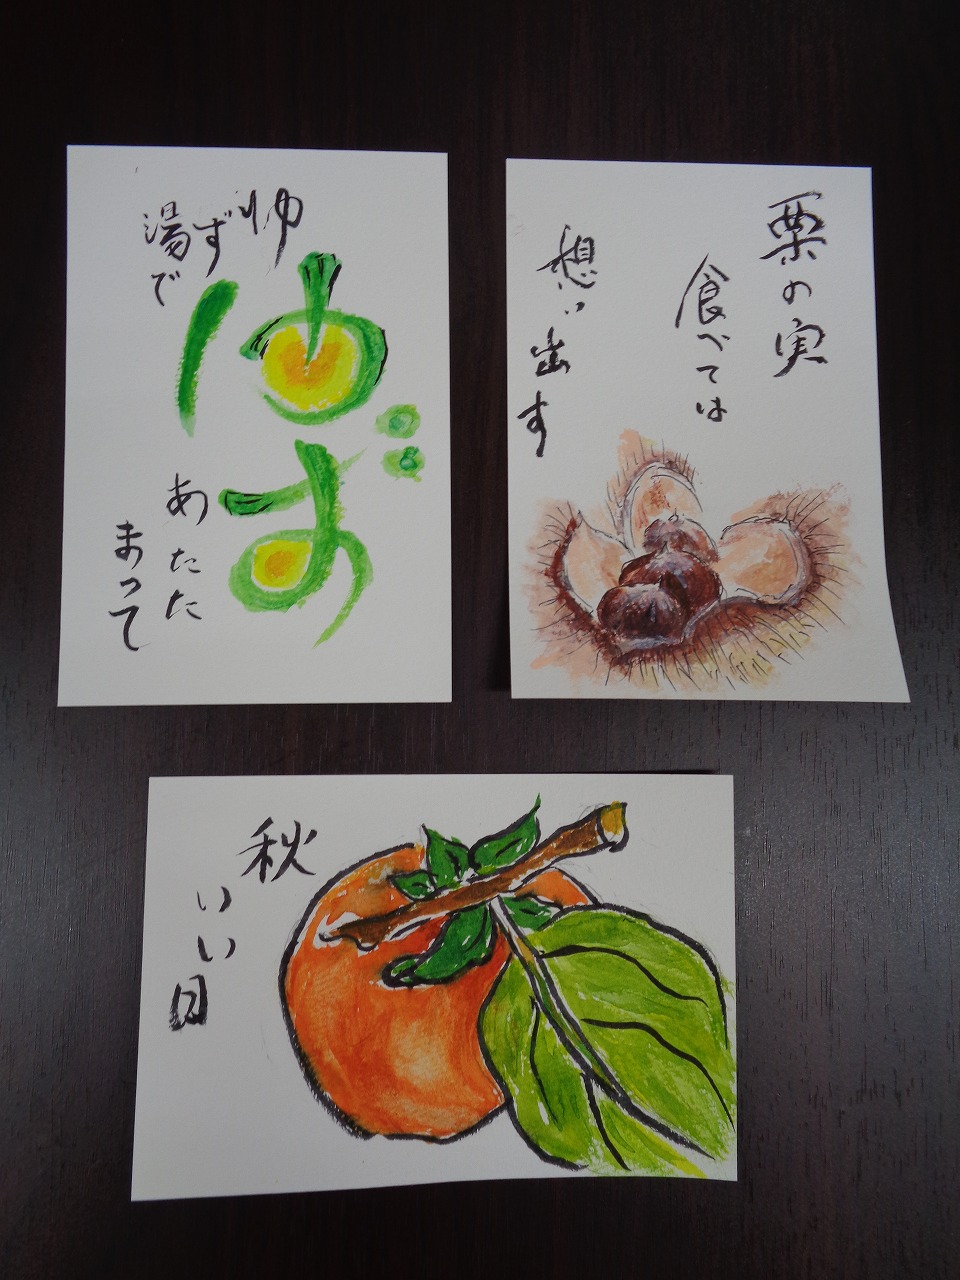 ゆず湯で
ゆず
あたた
まって
栗の実
食べては
想い出す
秋
いい日